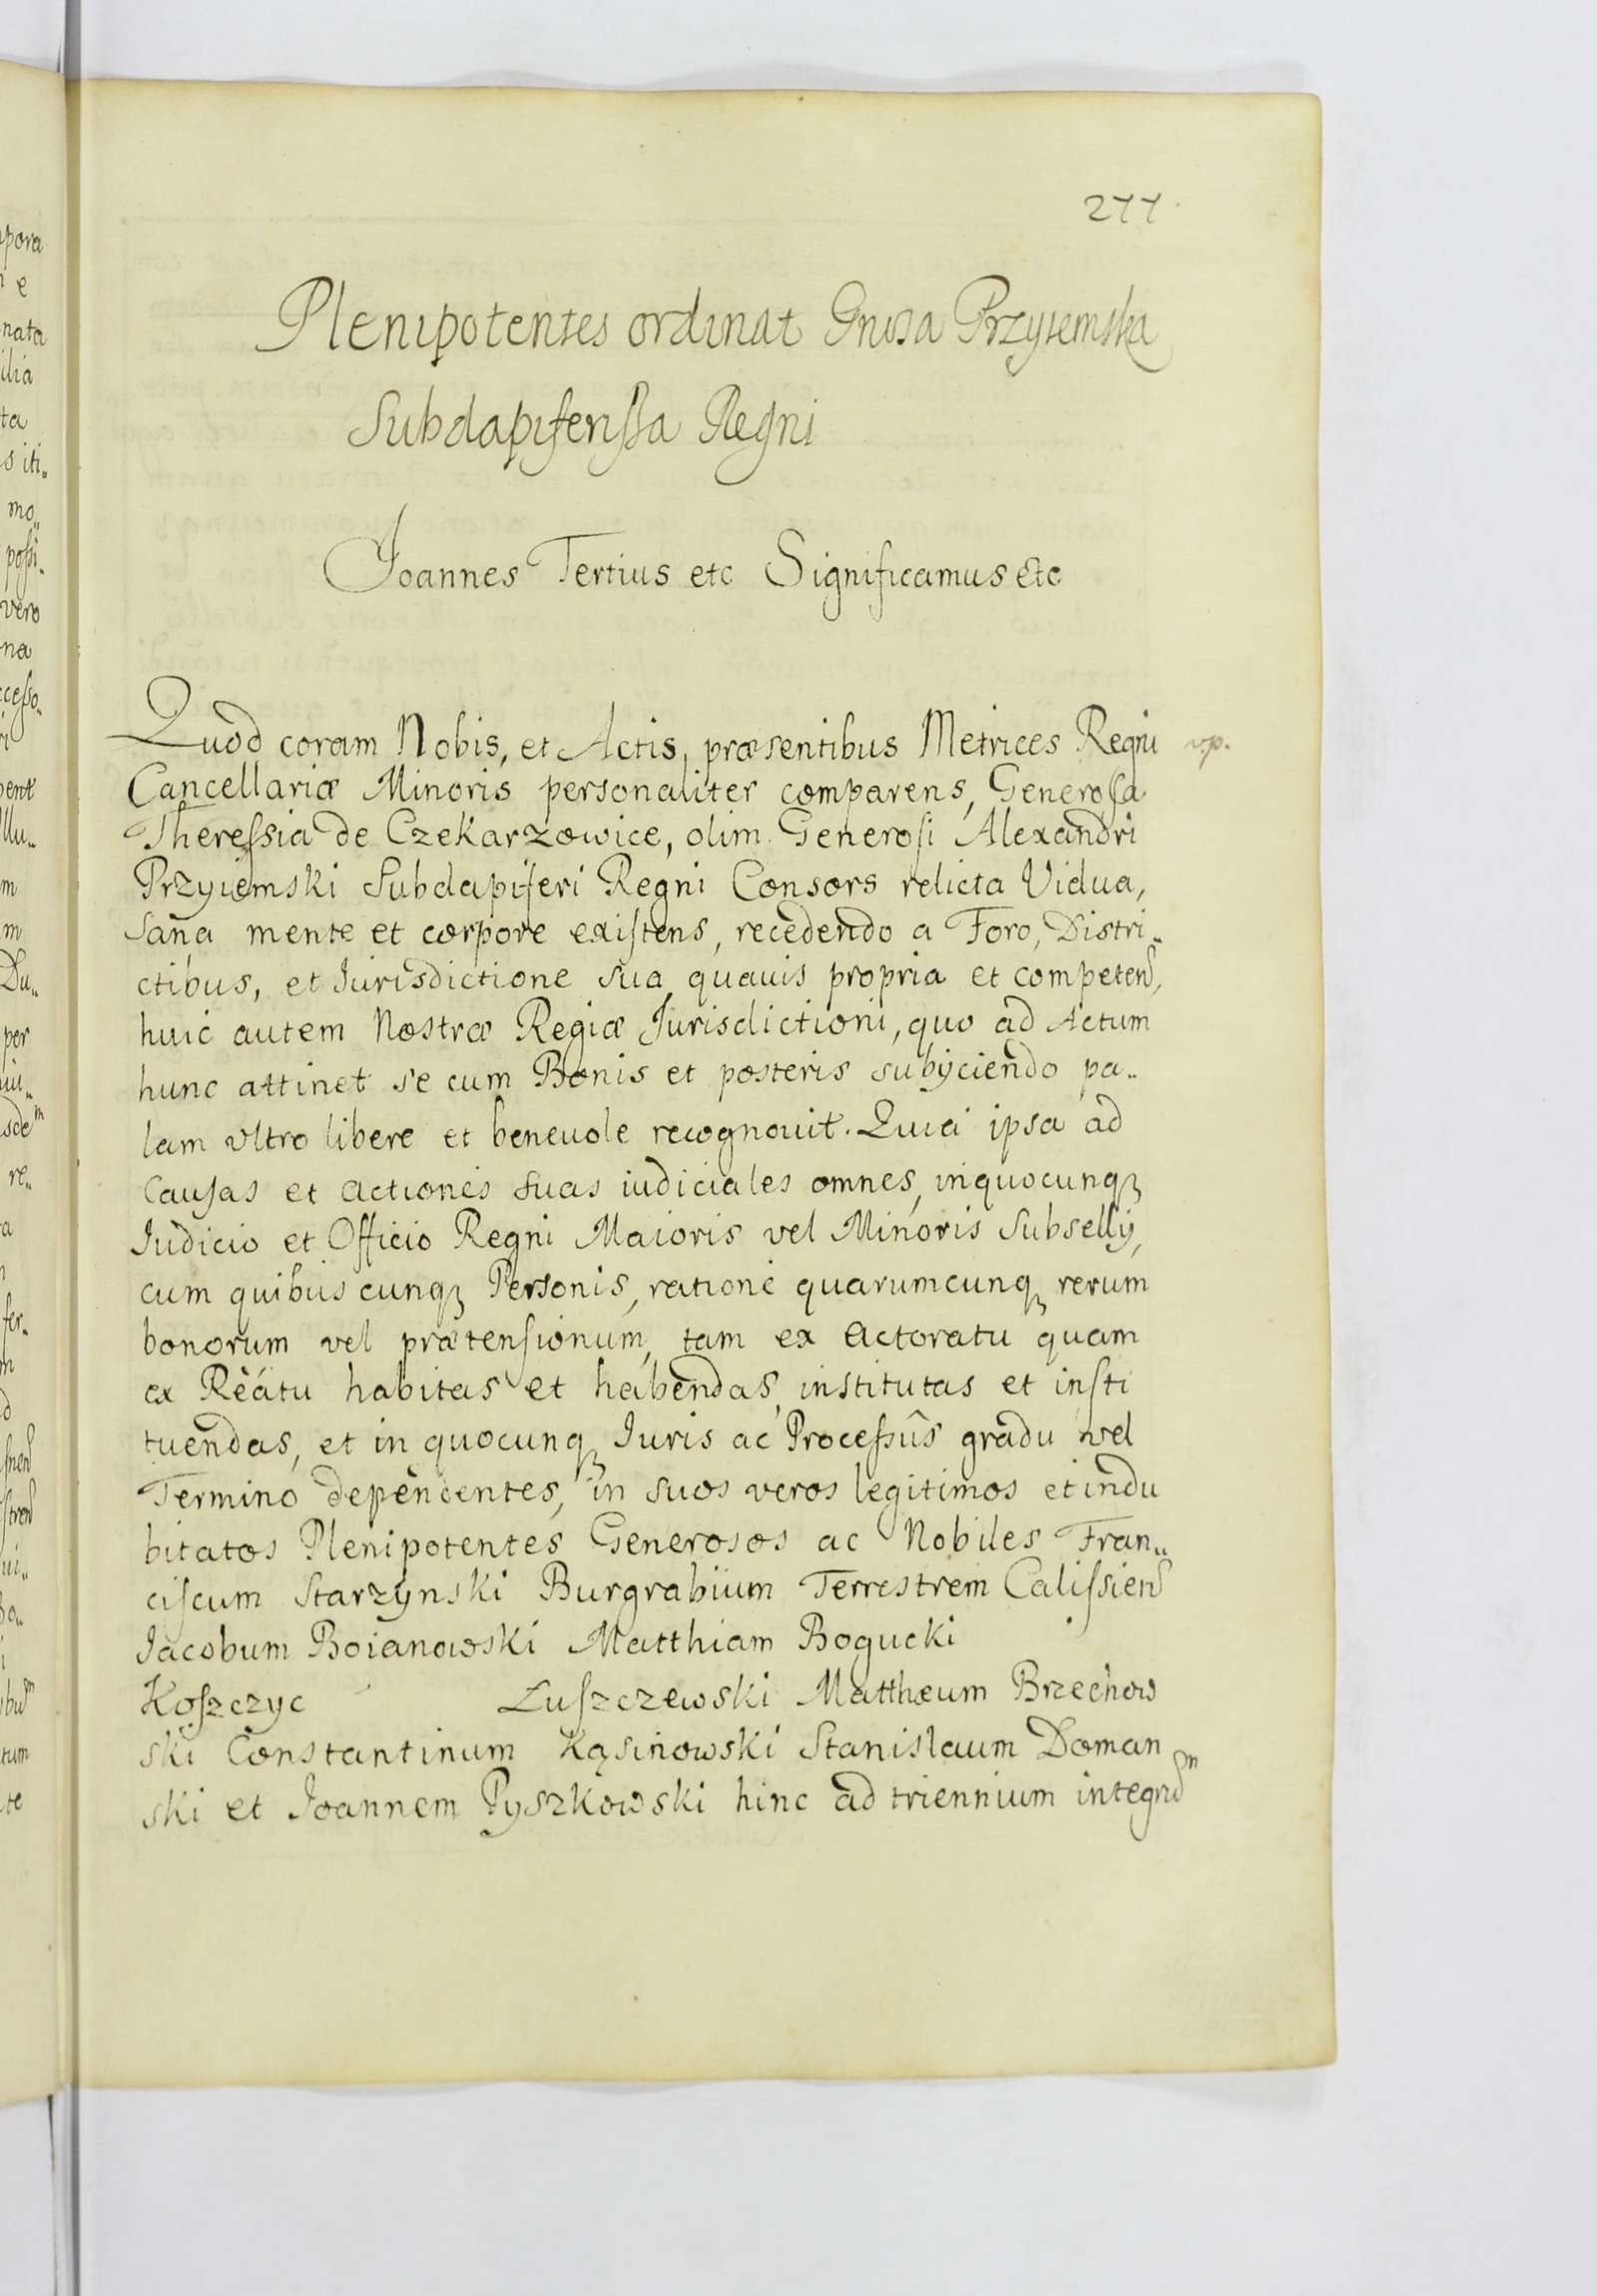 277
Plenipotentes ordinat Gnosa Przyiemska
Subdapiferissa Regni
Joannes Tertius etc Significamus etc
Quod coram Nobis, et Actis, præsentibus Metrices Regni
Cancellariæ Minoris personaliter comparens, Generosa
Theressia de Czekarzowice, olim Generosi Alexandri
Przyiemski Subdapiferi Regni Consors relicta Vidua,
sana mente et corpore existens, recedendo a Foro, Distri„
ctibus, et Jurisdictione sua quauis propria et competen,
huic autem Nostræ Regiæ Jurisdictioni, quo ad Actum
hunc attinet se cum Bonis et posteris subÿciendo pa„
lam vltro libere et beneuole recognouit. Quia ipsa ad
Causas et actiones suas iudiciales omnes, inquocunqꝫ
Judicio et Officio Regni Maioris vel Minoris Subsellÿ,
cum quibus cunqꝫ Personis, ratione quarumcunqꝫ rerum
bonorum vel prætensionum, tam ex actoratu quam
ex Reatu habitas et habendas, institutas et insti
tuendas, et in quocunqꝫ Juris ac Processûs gradu vel
Termino dependentes, in suos veros legitimos et indu
bitatos Plenipotentes Generosos ac Nobiles Fran„
ciscum Starzynski Burgrabium Terrestrem Calissien
Jacobum Boianowski Matthiam Bogucki
Koszczyc Luszczewski Matthæum Brzechow
ski Constantinum Kąsinowski Stanislaum Doman
ski et Joannem Pyszkowski hinc ad triennium integruᵐ